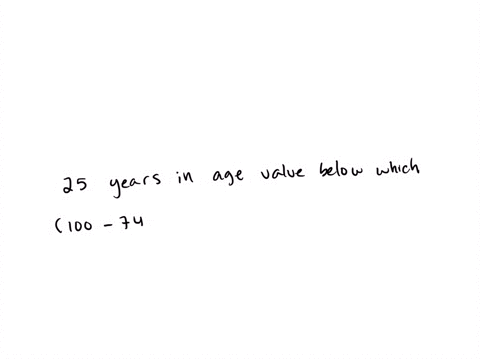 25 years in age value below which
(100 - 74